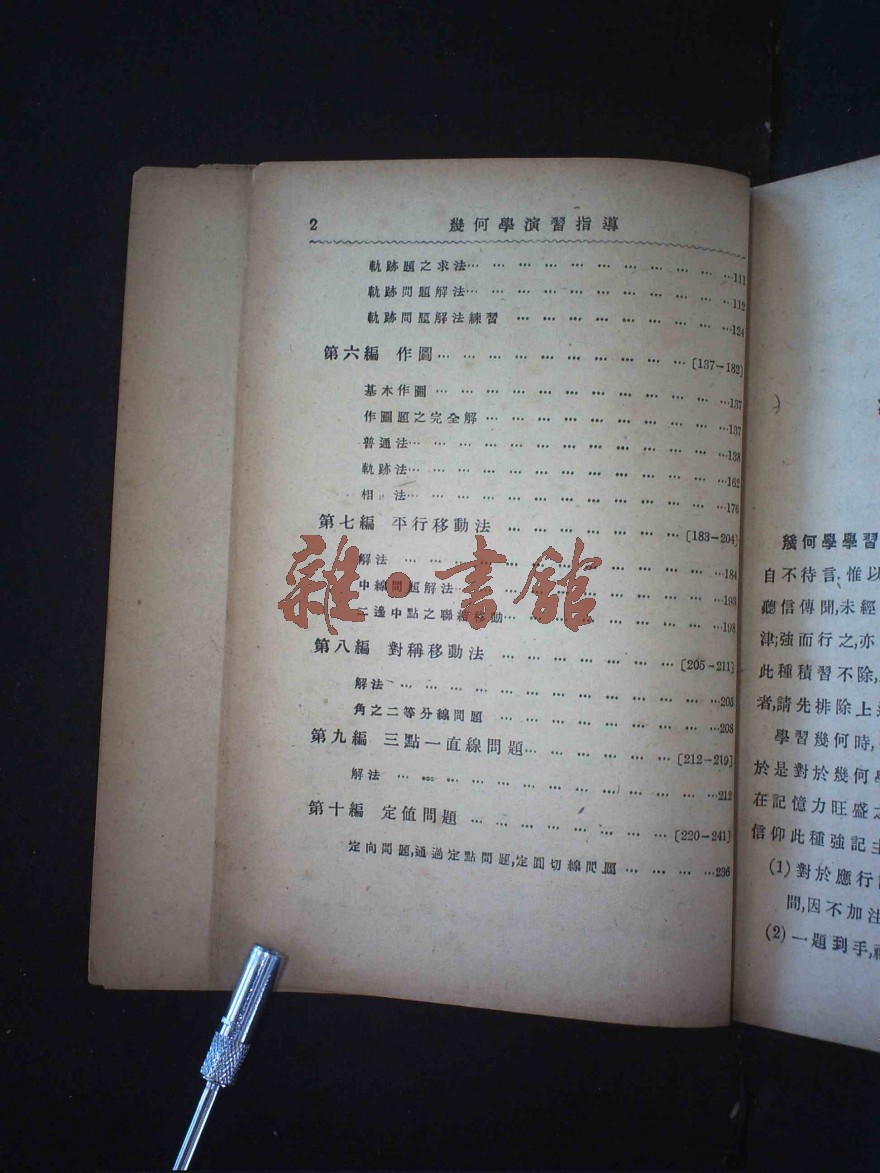 2 幾何學演習指導
軌跡題之求法… … … … … … … … … … …111
軌跡問題解法… … … … … … … … … … …112
軌跡問題解法練習 … … … … … … … …124
第六編 作圖… … … … … … … … … …〔137—182〕
基本作圖 … … … … … … … … … … … …137
作圖題之完全解 … … … … … … … … … …137
普通法… … … … … … … … … … … … …138
軌跡法… … … … … … … … … … … … …162
相 法… … … … … … … … … … … … …176
第七編 平行移動法 … … … … … … …〔183—204〕
解法 … … … … … … … … … … … … …184
中線問題解法… … … … … … … … … … …193
二邊中點之聯線移動… … … … … … … … …198
第八編 對稱移動法 … … … … … … …〔205—211〕
解法… … … … … … … … … … … … …205
角之二等分線問題 … … … … … … … … …208
第九編 三點一直線問題… … … … … …〔212—219〕
解法 … … … … … … … … … … … … …212
第十編 定値問題 … … … … … … … …〔220—241〕
定向問題,通過定點問題,定圓切線問題 … … … …236
幾何學學習
自不待言,惟以
聽信傳聞,未經
津;強而行之,亦
此種積習不除,
者,請先排除上
學習幾何時,
於是對於幾何學
在記憶力旺盛之
信仰此種強記主
(1) 對於應行
間,因不加注
(2) 一題到手,
雜·書館